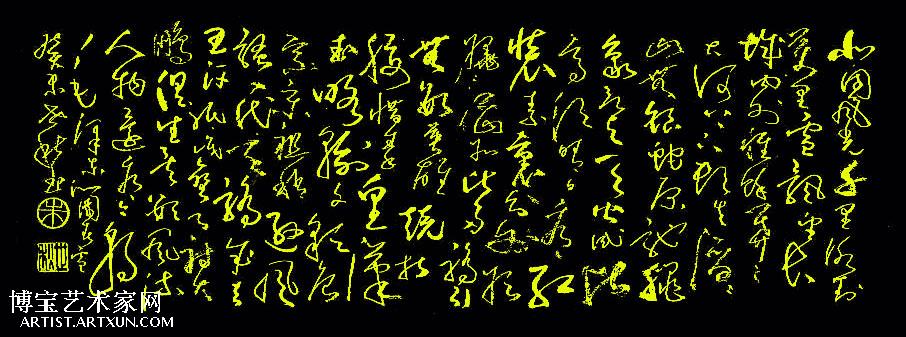 北国风光千里冰封
万里雪飘望长
城内外惟余莽々
大河上下顿失滔々
山舞银蛇原驰蜡
象欲与天公试比
高须晴日看红
装素裹分外妖
娆江山如此多娇引
无数英雄竞折
腰惜秦皇汉
武略输文
宗宋祖稍逊风
骚一代天骄成吉
汗只识弯弓射大
雕俱往矣数风流
人物还看今朝
毛泽东沁园春雪
癸未
博宝艺术家网
ARTIST.ARTXUN.COM